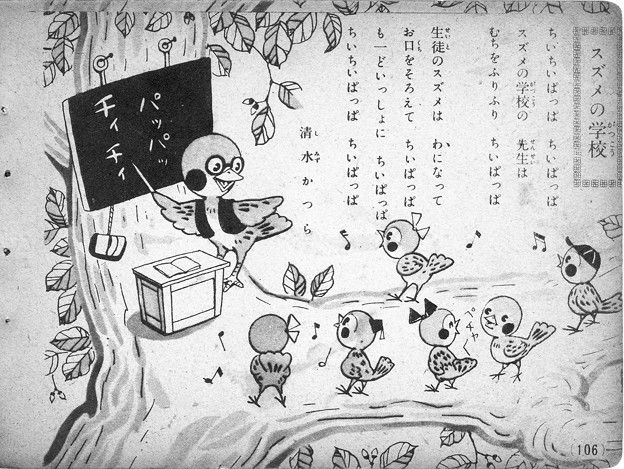 スズメの学校
ちいちいぱっぱ ちいぱっぱ
スズメの学校の 先生は
むちをふりふり ちいぱっぱ
生徒のスズメは わになって
お口をそろえて ちいぱっぱ
も一どいっしょに ちいぱっぱ
ちいちいぱっぱ ちいぱっぱ
清水かつら
パッパッ
チィチィ
ペチャ
(106)